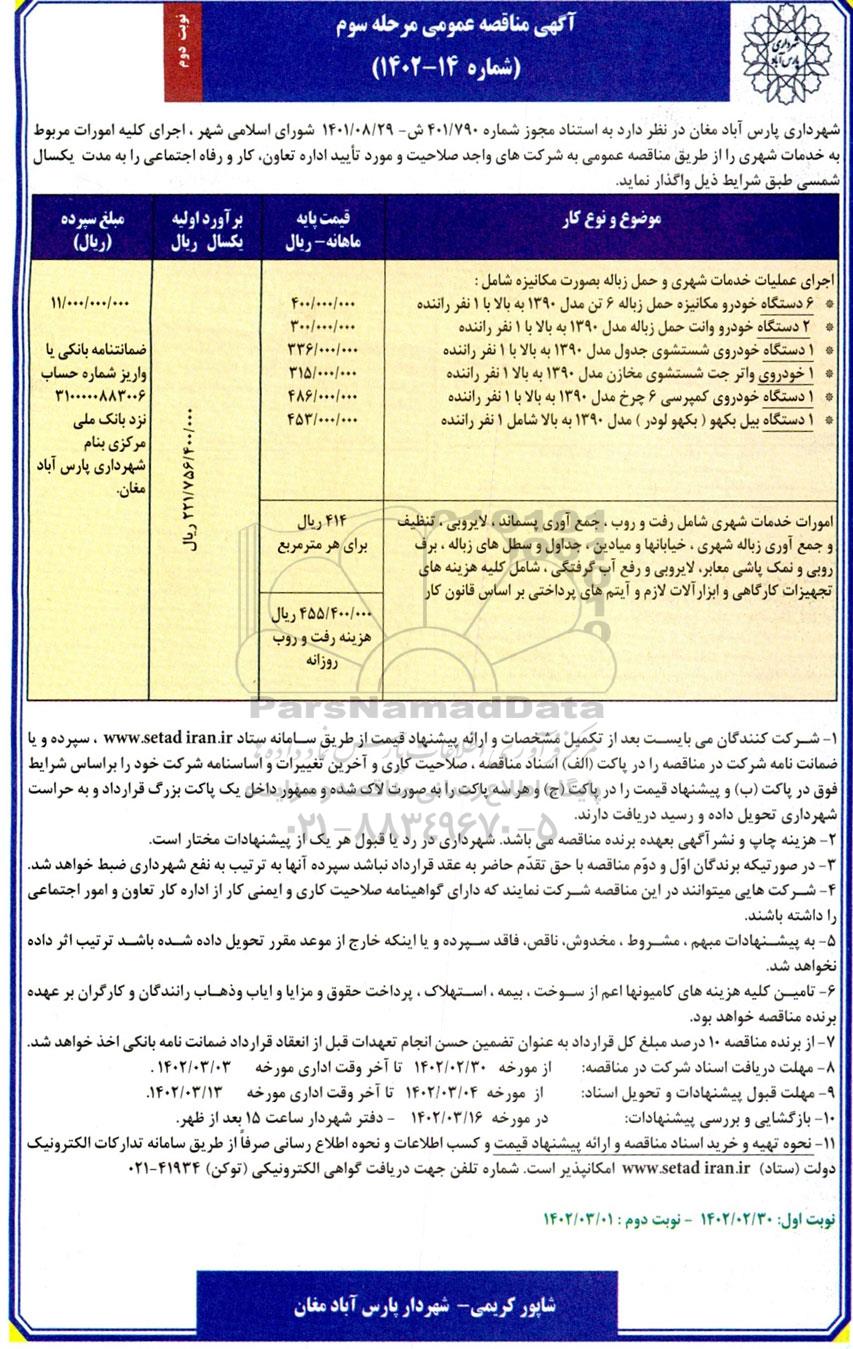 آگهی مناقصه عمومی مرحله سوم
(شماره ۱۴-۱۴۰۲)
نوبت دوم
شهرداری پارس آباد
شهرداری پارس آباد مغان در نظر دارد به استناد مجوز شماره ۴۰۱/۷۹۰ ش- ۱۴۰۱/۰۸/۲۹ شورای اسلامی شهر ، اجرای کلیه امورات مربوط
به خدمات شهری را از طریق مناقصه عمومی به شرکت های واجد صلاحیت و مورد تأیید اداره تعاون، کار و رفاه اجتماعی را به مدت یکسال
شمسی طبق شرایط ذیل واگذار نماید.
موضوع و نوع کار
قیمت پایه
ماهانه- ریال
برآورد اولیه
یکسال ریال
مبلغ سپرده
(ریال)
اجرای عملیات خدمات شهری و حمل زباله بصورت مکانیزه شامل :
* ۶ دستگاه خودرو مکانیزه حمل زباله ۶ تن مدل ۱۳۹۰ به بالا با ۱ نفر راننده
* ۲ دستگاه خودرو وانت حمل زباله مدل ۱۳۹۰ به بالا با ۱ نفر راننده
* ۱ دستگاه خودروی شستشوی جدول مدل ۱۳۹۰ به بالا با ۱ نفر راننده
* ۱ خودروی واتر جت شستشوی مخازن مدل ۱۳۹۰ به بالا ۱ نفر راننده
* ۱ دستگاه خودروی کمپرسی ۶ چرخ مدل ۱۳۹۰ به بالا با ۱ نفر راننده
* ۱ دستگاه بیل بکهو ( بکهو لودر ) مدل ۱۳۹۰ به بالا شامل ۱ نفر راننده
۴۰۰/۰۰۰/۰۰۰
۳۰۰/۰۰۰/۰۰۰
۳۳۶/۰۰۰/۰۰۰
۳۱۵/۰۰۰/۰۰۰
۴۸۶/۰۰۰/۰۰۰
۴۵۳/۰۰۰/۰۰۰
۲۲۱/۷۵۶/۴۰۰/۰۰۰ ریال
۱۱/۰۰۰/۰۰۰/۰۰۰
ضمانتنامه بانکی یا
واریز شماره حساب
۳۱۰۰۰۰۰۸۸۳۰۰۶
نزد بانک ملی
مرکزی بنام
شهرداری پارس آباد
مغان.
امورات خدمات شهری شامل رفت و روب ، جمع آوری پسماند ، لایروبی ، تنظیف
و جمع آوری زباله شهری ، خیابانها و میادین ، جداول و سطل های زباله ، برف
روبی و نمک پاشی معابر، لایروبی و رفع آب گرفتگی ، شامل کلیه هزینه های
تجهیزات کارگاهی و ابزارآلات لازم و آیتم های پرداختی بر اساس قانون کار
۴۱۴ ریال
برای هر مترمربع
۴۵۵/۴۰۰/۰۰۰ ریال
هزینه رفت و روب
روزانه
ParsNamadData
۰۲۱-۸۸۳۴۹۶۷۰-۵
۱- شرکت کنندگان می بایست بعد از تکمیل مشخصات و ارائه پیشنهاد قیمت از طریق سامانه ستاد www.setad iran.ir ، سپرده و یا
ضمانت نامه شرکت در مناقصه را در پاکت (الف) اسناد مناقصه ، صلاحیت کاری و آخرین تغییرات و اساسنامه شرکت خود را براساس شرایط
فوق در پاکت (ب) و پیشنهاد قیمت را در پاکت (ج) و هر سه پاکت را به صورت لاک شده و ممهور داخل یک پاکت بزرگ قرارداد و به حراست
شهرداری تحویل داده و رسید دریافت دارند.
۲- هزینه چاپ و نشر آگهی بعهده برنده مناقصه می باشد. شهرداری در رد یا قبول هر یک از پیشنهادات مختار است.
۳- در صورتیکه برندگان اوّل و دوّم مناقصه با حق تقدّم حاضر به عقد قرارداد نباشد سپرده آنها به ترتیب به نفع شهرداری ضبط خواهد شد.
۴- شرکت هایی میتوانند در این مناقصه شرکت نمایند که دارای گواهینامه صلاحیت کاری و ایمنی کار از اداره کار تعاون و امور اجتماعی
را داشته باشند.
۵- به پیشنهادات مبهم ، مشروط ، مخدوش، ناقص، فاقد سپرده و یا اینکه خارج از موعد مقرر تحویل داده شده باشد ترتیب اثر داده
نخواهد شد.
۶- تامین کلیه هزینه های کامیونها اعم از سوخت ، بیمه ، استهلاک ، پرداخت حقوق و مزایا و ایاب وذهاب رانندگان و کارگران بر عهده
برنده مناقصه خواهد بود.
۷- از برنده مناقصه ۱۰ درصد مبلغ کل قرارداد به عنوان تضمین حسن انجام تعهدات قبل از انعقاد قرارداد ضمانت نامه بانکی اخذ خواهد شد.
۸- مهلت دریافت اسناد شرکت در مناقصه: از مورخه ۱۴۰۲/۰۲/۳۰ تا آخر وقت اداری مورخه ۱۴۰۲/۰۳/۰۳ .
۹- مهلت قبول پیشنهادات و تحویل اسناد: از مورخه ۱۴۰۲/۰۳/۰۴ تا آخر وقت اداری مورخه ۱۴۰۲/۰۳/۱۳.
۱۰- بازگشایی و بررسی پیشنهادات: در مورخه ۱۴۰۲/۰۳/۱۶ - دفتر شهردار ساعت ۱۵ بعد از ظهر.
۱۱- نحوه تهیه و خرید اسناد مناقصه و ارائه پیشنهاد قیمت و کسب اطلاعات و نحوه اطلاع رسانی صرفاً از طریق سامانه تدارکات الکترونیک
دولت (ستاد) www.setad iran.ir امکانپذیر است. شماره تلفن جهت دریافت گواهی الکترونیکی (توکن) ۴۱۹۳۴-۰۲۱
نوبت اول: ۱۴۰۲/۰۲/۳۰ - نوبت دوم : ۱۴۰۲/۰۳/۰۱
شاپور کریمی- شهردار پارس آباد مغان